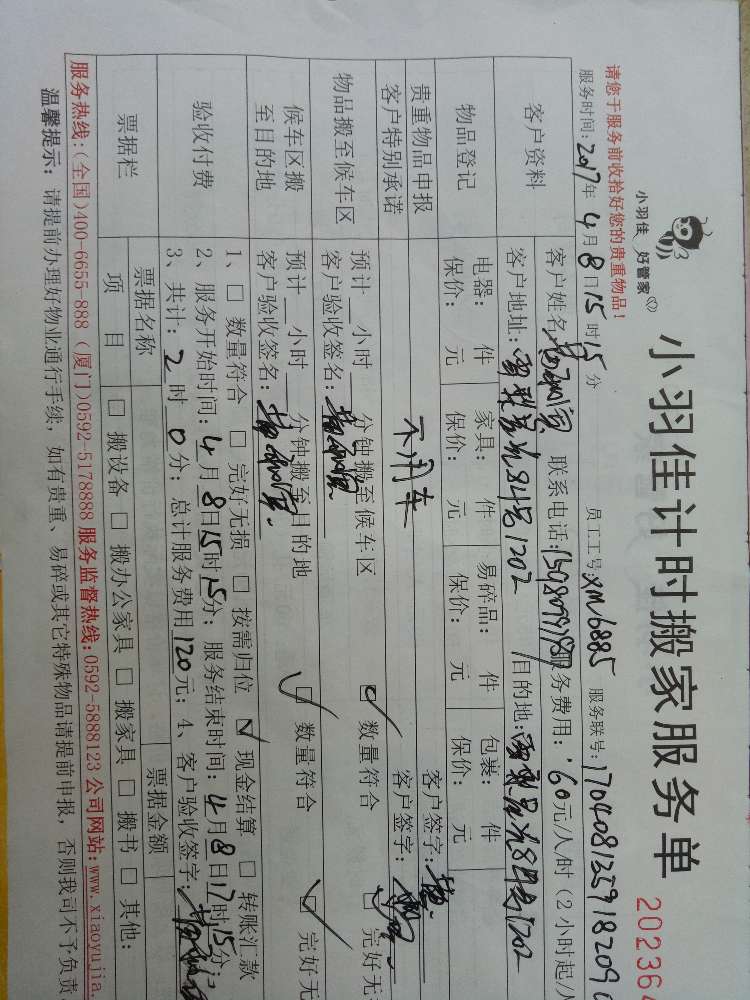 小羽佳 好管家
小羽佳计时搬家服务单
20236
请您于服务前收拾好您的贵重物品!
服务时间:2017年4月8日15时15分 员工工号xm6885 服务联号:170408125918209
客户资料
客户姓名: 联系电话: 服务费用:60元/人/时(2小时起/
客户地址: 84号1202 目的地: 1202
物品登记
电器: 件 家具: 件 易碎品: 件 包裹: 件
保价: 元 保价: 元 保价: 元 保价: 元
贵重物品申报
客户特别承诺
不用车
客户签字:
客户签字:
物品搬至候车区
预计__小时__分钟搬至候车区 数量符合 完好无
客户验收签名:
候车区搬
至目的地
预计__小时__分钟搬至目的地 数量符合 完好无
客户验收签名:
验收付费
1、□ 数量符合 □ 完好无损 □ 按需归位 ☑ 现金结算 □ 转账汇款
2、服务开始时间:4月8日15时15分;服务结束时间:4月8日17时15分;
3、共计:2时0分;总计服务费用120元;4、客户验收签字:
票据栏
票据名称 票据金额
项 目 □ 搬设备 □ 搬办公家具 □ 搬家具 □ 搬书 □ 其他:
服务热线:(全国)400-6655-888(厦门)0592-5178888 服务监督热线:0592-5888123 公司网站:www.xiaoyujia.
温馨提示:请提前办理好物业通行手续,如有贵重、易碎或其它特殊物品请提前申报,否则我司不予负责